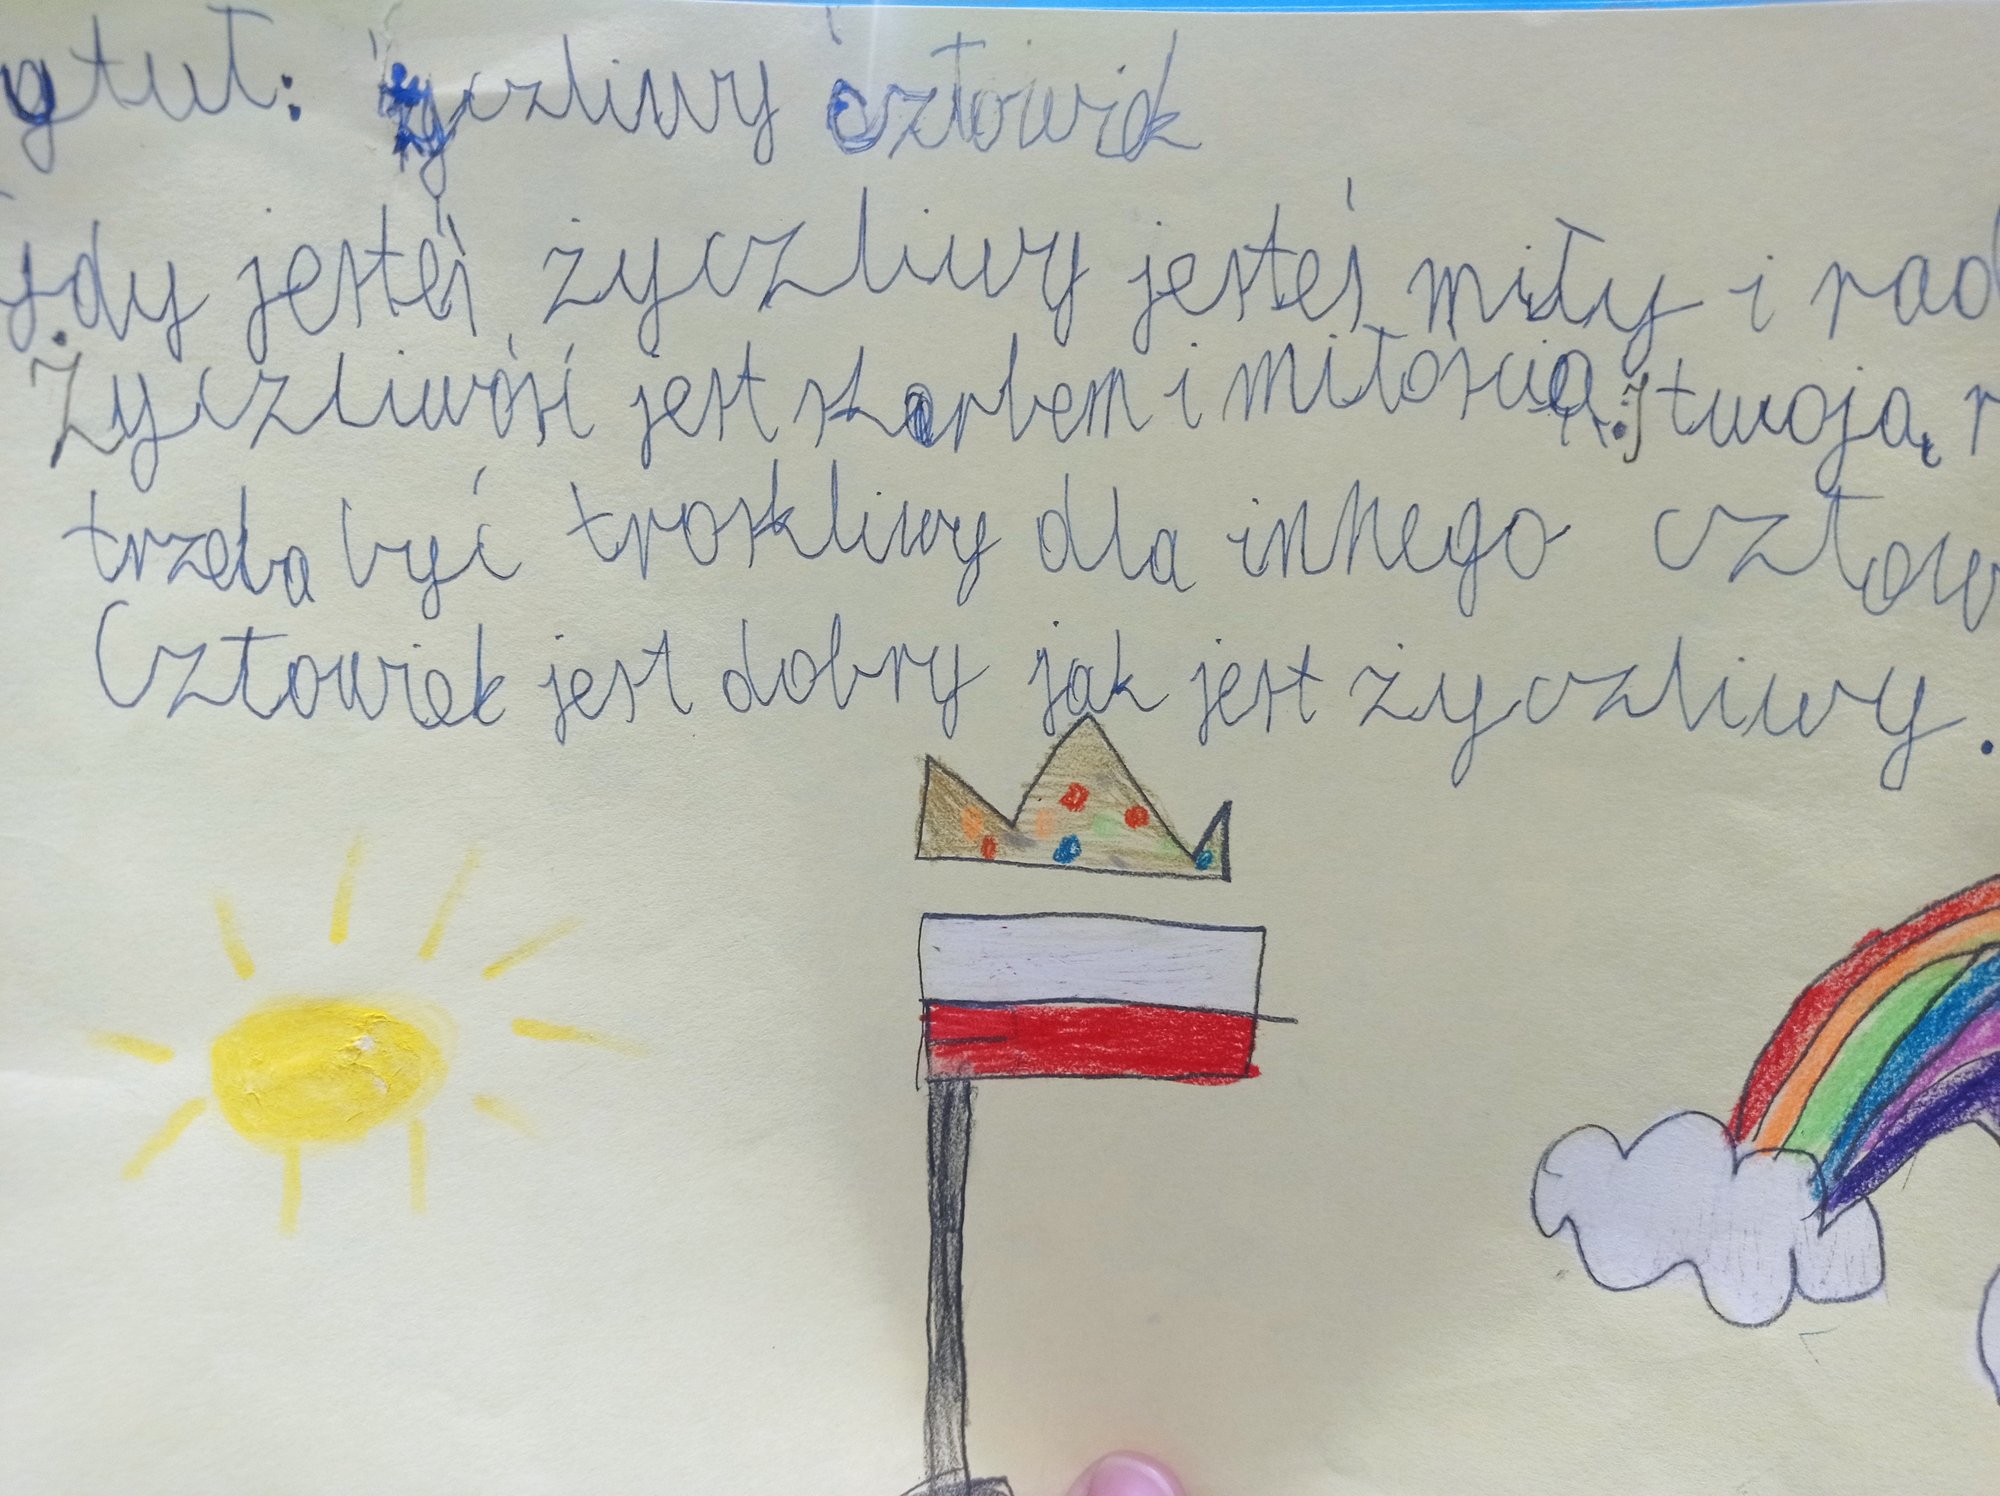 ytuł: życzliwy człowiek
gdy jesteś życzliwy jesteś miły i rad
Życzliwość jest skarbem i miłością. twoją
trzeba być troskliwy dla innego człow
Człowiek jest dobry jak jest życzliwy.